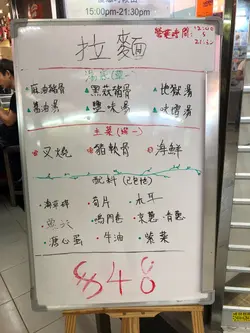 15:00pm-21:30pm
拉麵
湯底(選一)
麻油豬骨
黑蒜豬骨
地獄湯
醬油湯
鹽味湯
味噌湯
主菜(選一)
叉燒
豬軟骨
海鮮
配料(已包括)
筍片
木耳
鳴門卷
京蔥
溏心蛋
牛油
紫菜
$48